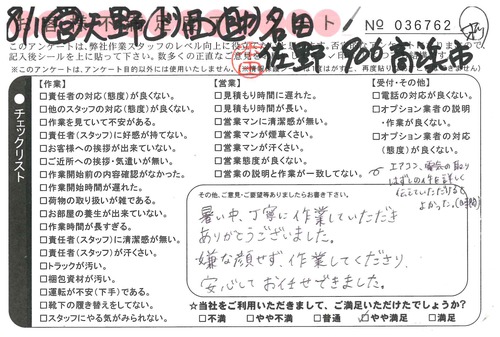 8/11 営 天野 山田 名田
佐野 906 高浜市
No 036762
このアンケートは、弊社作業スタッフのレベル向上に
記入後シールを上に貼って下さい。
(※このアンケートは、アンケート目的以外には使用いたしません。
チェックリスト
【作業】
□責任者の対応(態度)が良くない。
□他のスタッフの対応(態度)が良くない。
□作業を見ていて不安がある。
□責任者(スタッフ)に好感が持てない。
□お客様への挨拶が出来ていない。
□ご近所への挨拶・気遣いが無い。
□作業開始前の内容確認がなかった。
□作業開始時間が遅れた。
□荷物の取り扱いが雑である。
□お部屋の養生が出来ていない。
□作業時間が長すぎる。
□責任者(スタッフ)に清潔感が無い。
□責任者(スタッフ)が汗くさい。
□トラックが汚い。
□梱包資材が汚い。
□運転が不安(下手)である。
□靴下の履き替えをしてない。
□スタッフにやる気がみられない。
【営業】
□見積もり時間に遅れた。
□見積もり時間が長い。
□営業マンに清潔感が無い。
□営業マンが煙草くさい。
□営業マンが汗くさい。
□営業態度が良くない。
□営業の説明と作業が一致してない。
【受付・その他】
□電話の対応が良くない。
□オプション業者の説明
・作業が良くない。
□オプション業者の対応
(態度)が良くない。
エアコン、電気の取り
はずしの件を詳しく
伝えていただけると
よかった。(時間)
その他、ご意見・ご要望等ありましたらお書き下さい。
暑い中、丁寧に作業していただき
ありがとうございました。
嫌な顔せず、作業してくださり、
安心してお任せできました。
☆当社をご利用いただきまして、ご満足いただけたでしょうか?
□不満 □やや不満 □普通 □やや満足 □満足